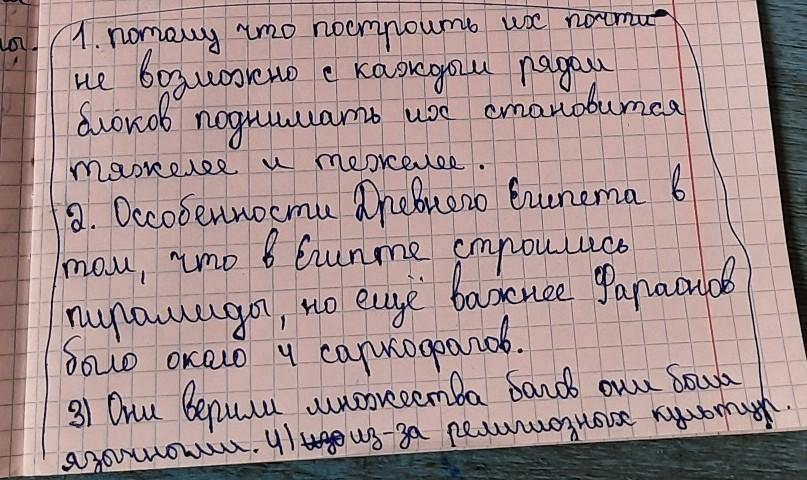 1. потому что построить их почти
не возможно с каждым рядом
блоков поднимать их становится
тяжелее и тежелее.
2. Оссобенности Древнего Египета в
том, что в Египте строились
пирамиды, но ещё важнее Фараонов
было около 4 саркофагов.
3) Они верили множества багов они была
язычными. 4) из-за религиозных культур.